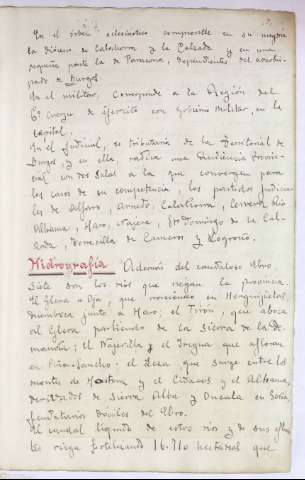 En el orden eclesiástico comprende en su mayoría
la diócesis de Calahorra y la Calzada y en una
pequeña parte la de Tarazona, dependientes del arzobis-
pado de Burgos
En el militar, corresponde a la Región del
6º Cuerpo de Ejército con Gobierno Militar, en la
capital.
En el Judicial, es tributaria de la Territorial de
Burgos, y en ella, radica una Audiencia Provin-
cial con dos Salas a la que convergen para
los casos de su competencia, los partidos judicia-
les de Alfaro, Arnedo, Calahorra, Cervera Río
Alhama, Haro, Nájera, Stº Domingo de la Cal-
zada, Torrecilla de Cameros y Logroño.
Hidrografía Además del caudaloso Ebro,
siete son los ríos que riegan la provincia.
El Glera u Oja, que naciendo en
junto a Haro; el Tirón, que aboca
al Glera partiendo de la Sierra de la De-
manda; el Najerilla y el Iregua que afloran
en el Leza que surge entre los
montes de y el Cidacos y el Alhama,
derivados de Sierra Alba y Oncala en Soria
feudatarios dóciles del Ebro.
El caudal líquido de estos ríos y de sus
riega fertilizando 16.710 hectáreas que